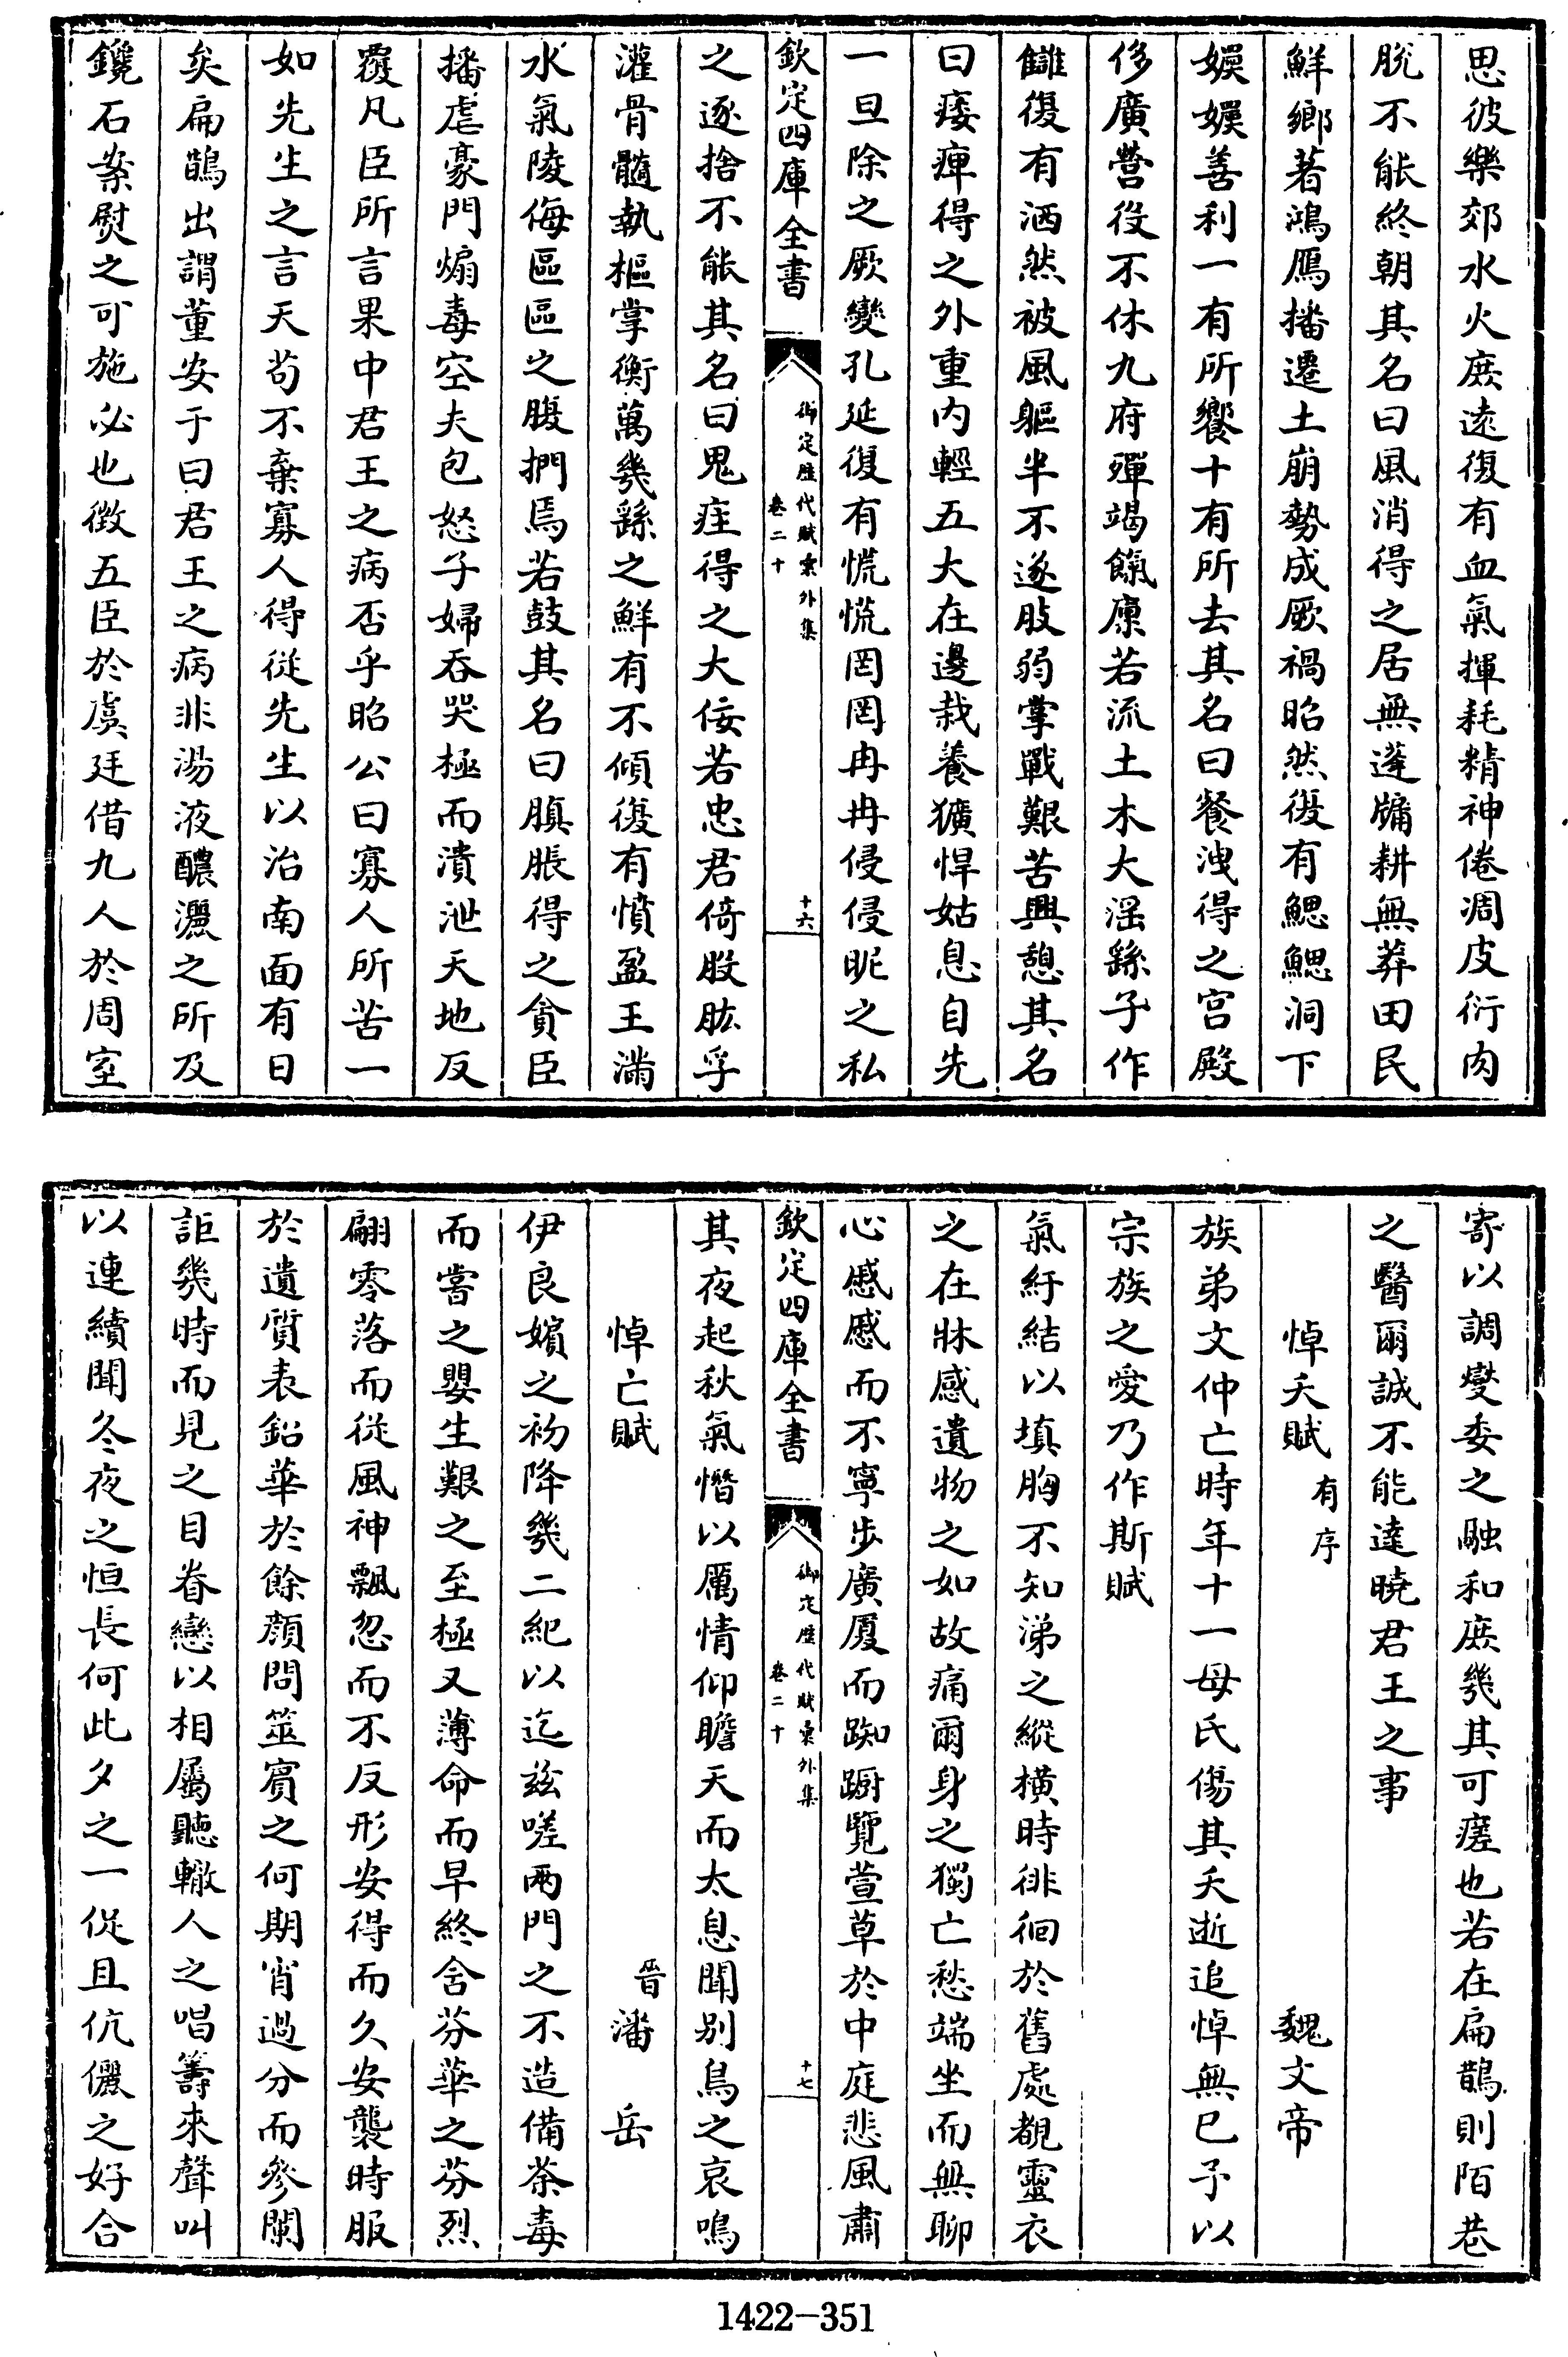 思彼樂郊水火庶遠復有血氣揮耗精神倦凋皮衍肉
脫不能終朝其名曰風消得之居無蓬牖耕無莽田民
鮮鄉著鴻鴈播遷土崩勢成厥禍昭然復有鰓鰓洞下
娛娛善利一有所饗十有所去其名曰餐洩得之宮殿
侈廣營役不休九府殫竭餼廩若流土木大滛繇子作
讎復有洒然被風軀半不遂肢弱掌戰艱苦興憩其名
曰痿痺得之外重内輕五大在邊栽養獷悍姑息自先
一旦除之厥變孔延復有慌慌罔罔冉冉侵侵昵之私
欽定四庫全書
御定歷代賦彙外集
卷二十
十六
之逐捨不能其名曰鬼疰得之大佞若忠君倚股肱孚
灌骨髓執樞掌衡萬幾繇之鮮有不傾復有憤盈王滿
水氣陵侮區區之腹捫焉若鼓其名曰䐜脹得之貪臣
播虐豪門煽毒空夫包怒子婦吞哭極而潰泄天地反
覆凡臣所言果中君王之病否乎昭公曰寡人所苦一
如先生之言天苟不棄寡人得從先生以治南面有日
矣扁鵲出謂董安于曰君王之病非湯液醲灑之所及
鑱石案熨之可施必也徴五臣於虞廷借九人於周室
寄以調燮委之融和庶幾其可瘥也若在扁鵲則陌巷
之醫爾誠不能達曉君王之事
悼夭賦 有序 魏文帝
族弟文仲亡時年十一母氏傷其夭逝追悼無已予以
宗族之愛乃作斯賦
氣紆結以填胸不知涕之縱横時徘徊於舊處覩靈衣
之在牀感遺物之如故痛爾身之獨亡愁端坐而無聊
心慼慼而不寧步廣厦而踟蹰覽萱草於中庭悲風肅
欽定四庫全書
御定歷代賦彙外集
卷二十
十七
其夜起秋氣憯以厲情仰瞻天而太息聞别鳥之哀鳴
悼亡賦 晉潘岳
伊良嬪之初降幾二紀以迄兹嗟兩門之不造備荼毒
而嘗之嬰生艱之至極又薄命而早終含芬華之芬烈
翩零落而從風神飄忽而不反形安得而久安襲時服
於遺質表鉛華於餘顔問筮賔之何期宵過分而參闌
詎幾時而見之目眷戀以相屬聽轍人之唱籌來聲叫
以連續聞冬夜之恒長何此夕之一促且伉儷之好合
1422-351